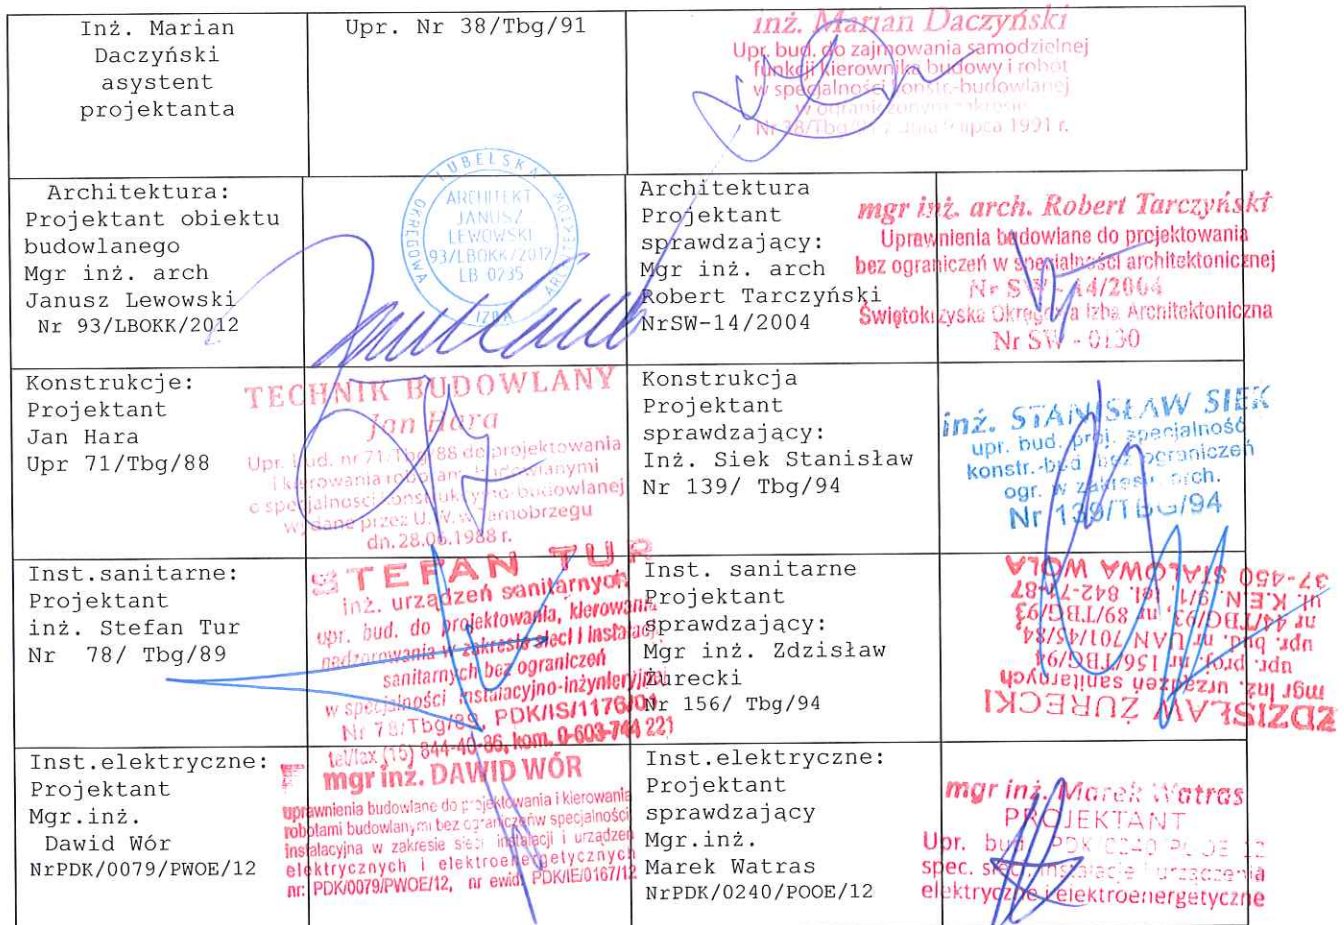 Inż. Marian
Daczyński
asystent
projektanta
Upr. Nr 38/Tbg/91
inż. Marian Daczyński
Upr. bud. do zajmowania samodzielnej
funkcji kierownika budowy i robót
w specjalności konstr.-budowlanej
w ograniczonym zakresie
Nr 38/Tbg/91 z dnia 9 lipca 1991 r.
Architektura:
Projektant obiektu
budowlanego
Mgr inż. arch
Janusz Lewowski
Nr 93/LBOKK/2012
LUBELSKA OKRĘGOWA IZBA ARCHITEKTÓW
ARCHITEKT
JANUSZ
LEWOWSKI
93/LBOKK/2012
LB 0235
Architektura
Projektant
sprawdzający:
Mgr inż. arch
Robert Tarczyński
NrSW-14/2004
mgr inż. arch. Robert Tarczyński
Uprawnienia budowlane do projektowania
bez ograniczeń w specjalności architektonicznej
Nr SW - 14/2004
Świętokrzyska Okręgowa Izba Architektoniczna
Nr SW - 0130
Konstrukcje:
Projektant
Jan Hara
Upr 71/Tbg/88
TECHNIK BUDOWLANY
Jan Hara
Upr. bud. nr 71/Tbg/88 do projektowania
i kierowania robotami budowlanymi
o specjalności konstrukcyjno-budowlanej
wydane przez U.W. w Tarnobrzegu
dn. 28.06.1988 r.
Konstrukcja
Projektant
sprawdzający:
Inż. Siek Stanisław
Nr 139/ Tbg/94
inż. STANISŁAW SIEK
upr. bud. proj. specjalność
konstr.-bud. bez ograniczeń
ogr. w zakresie arch.
Nr 139/TBG/94
Inst.sanitarne:
Projektant
inż. Stefan Tur
Nr 78/ Tbg/89
STEFAN TUR
inż. urządzeń sanitarnych
upr. bud. do projektowania, kierowania
nadzorowania w zakresie sieci i instalacji
sanitarnych bez ograniczeń
w specjalności instalacyjno-inżynieryjnej
Nr 78/Tbg/89, PDK/IS/1176/01
tel/fax (15) 844-40-86, kom. 0-603-744 221
Inst. sanitarne
Projektant
sprawdzający:
Mgr inż. Zdzisław
Żurecki
Nr 156/ Tbg/94
ZDZISŁAW ŻURECKI
mgr inż. urządzeń sanitarnych
upr. proj. nr 156/TBG/94
upr. bud. nr UAN 701/45/84
nr 44/TBG/93, nr 89/TBG/93
ul. K.E.N. 9/1, tel. 842-74-87
37-450 STALOWA WOLA
Inst.elektryczne:
Projektant
Mgr.inż.
Dawid Wór
NrPDK/0079/PWOE/12
mgr inż. DAWID WÓR
uprawnienia budowlane do projektowania i kierowania
robotami budowlanymi bez ograniczeń w specjalności
instalacyjna w zakresie sieci instalacji i urządzeń
elektrycznych i elektroenergetycznych
nr: PDK/0079/PWOE/12, nr ewid. PDK/IE/0167/12
Inst.elektryczne:
Projektant
sprawdzający
Mgr.inż.
Marek Watras
NrPDK/0240/POOE/12
mgr inż. Marek Watras
PROJEKTANT
Upr. bud. PDK/0240/POOE/12
spec. sieci, instalacje i urządzenia
elektryczne i elektroenergetyczne